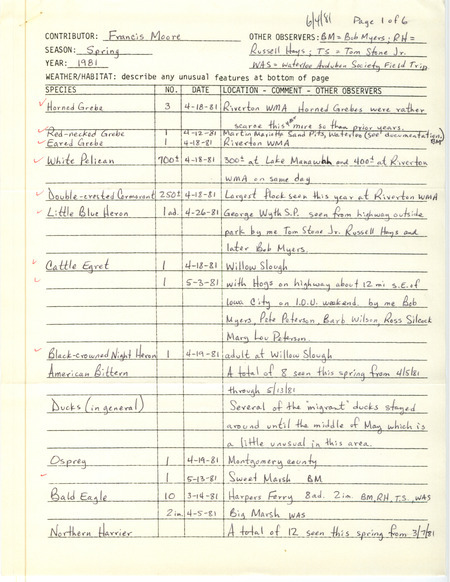 6/4/81 Page 1 of 6
CONTRIBUTOR: Francis Moore OTHER OBSERVERS: BM = Bob Myers; RH =
SEASON: Spring Russell Hays; TS = Tom Stone Jr.
YEAR: 1981 WAS = Waterloo Audubon Society Field Trip
WEATHER/HABITAT: describe any unusual features at bottom of page
SPECIES NO. DATE LOCATION - COMMENT - OTHER OBSERVERS
Horned Grebe 3 4-18-81 Riverton WMA Horned Grebes were rather
scarce this year more so than prior years.
Red-necked Grebe 1 4-12-81 Martin Marietta Sand Pits, Waterloo (see documentation) BM
Eared Grebe 1 4-18-81 Riverton WMA
White Pelican 700± 4-18-81 300± at Lake Manawah and 400± at Riverton
WMA on same day
Double-crested Cormorant 250± 4-18-81 Largest flock seen this year at Riverton WMA
Little Blue Heron 1 ad. 4-26-81 George Wyth S.P. seen from highway outside
park by me Tom Stone Jr. Russell Hays and
later Bob Myers.
Cattle Egret 1 4-18-81 Willow Slough
1 5-3-81 with Hogs on highway about 12 mi S.E. of
Iowa City on I.O.U. weekend. by me Bob
Myers, Pete Peterson, Barb Wilson, Ross Silcock
Mary Lou Peterson.
Black-crowned Night Heron 1 4-19-81 adult at Willow Slough
American Bittern A total of 8 seen this spring from 4/5/81
through 5/13/81
Ducks (in general) Several of the "migrant" ducks stayed
around until the middle of May which is
a little unusual in this area.
Osprey 1 4-19-81 Montgomery county
1 5-13-81 Sweet Marsh BM
Bald Eagle 10 3-14-81 Harpers Ferry 8ad. 2im. BM, RH, T.S., WAS
2im. 4-5-81 Big Marsh WAS
Northern Harrier A total of 12 seen this spring from 3/7/81